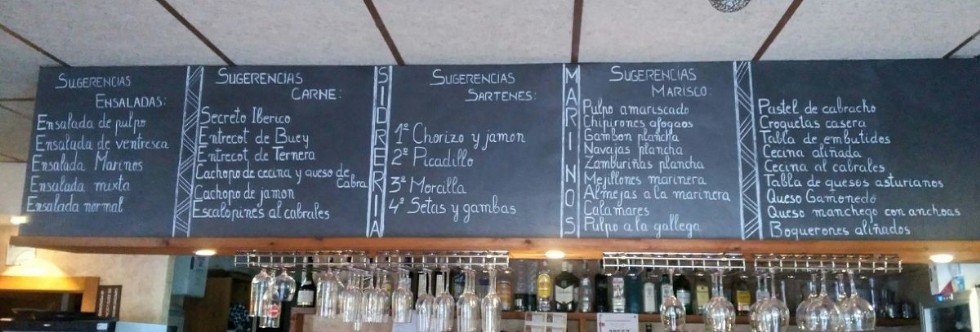 SUGERENCIAS
ENSALADAS:
Ensalada de pulpo
Ensalada de ventresca
Ensalada Marinos
Ensalada mixta
Ensalada normal
SUGERENCIAS
CARNE:
Secreto Iberico
Entrecot de Buey
Entrecot de Ternera
Cachopo de cecina y queso de
Cabra
Cachopo de jamon
Escalopines al cabrales
SIDRERIA
SUGERENCIAS
SARTENES:
1º Chorizo y jamon
2º Picadillo
3º Morcilla
4º Setas y gambas
MARINOS
SUGERENCIAS
MARISCO:
Pulpo amariscado
Chipirones afogaos
Gambon plancha
Navajas plancha
Zamburiñas plancha
Mejillones marinera
Almejas a la marinera
Calamares
Pulpo a la gallega
Pastel de cabracho
Croquetas casera
Tabla de embutidos
Cecina aliñada
Cecina al cabrales
Tabla de quesos asturianos
Queso Gamonedo
Queso manchego con anchoas
Boquerones aliñados